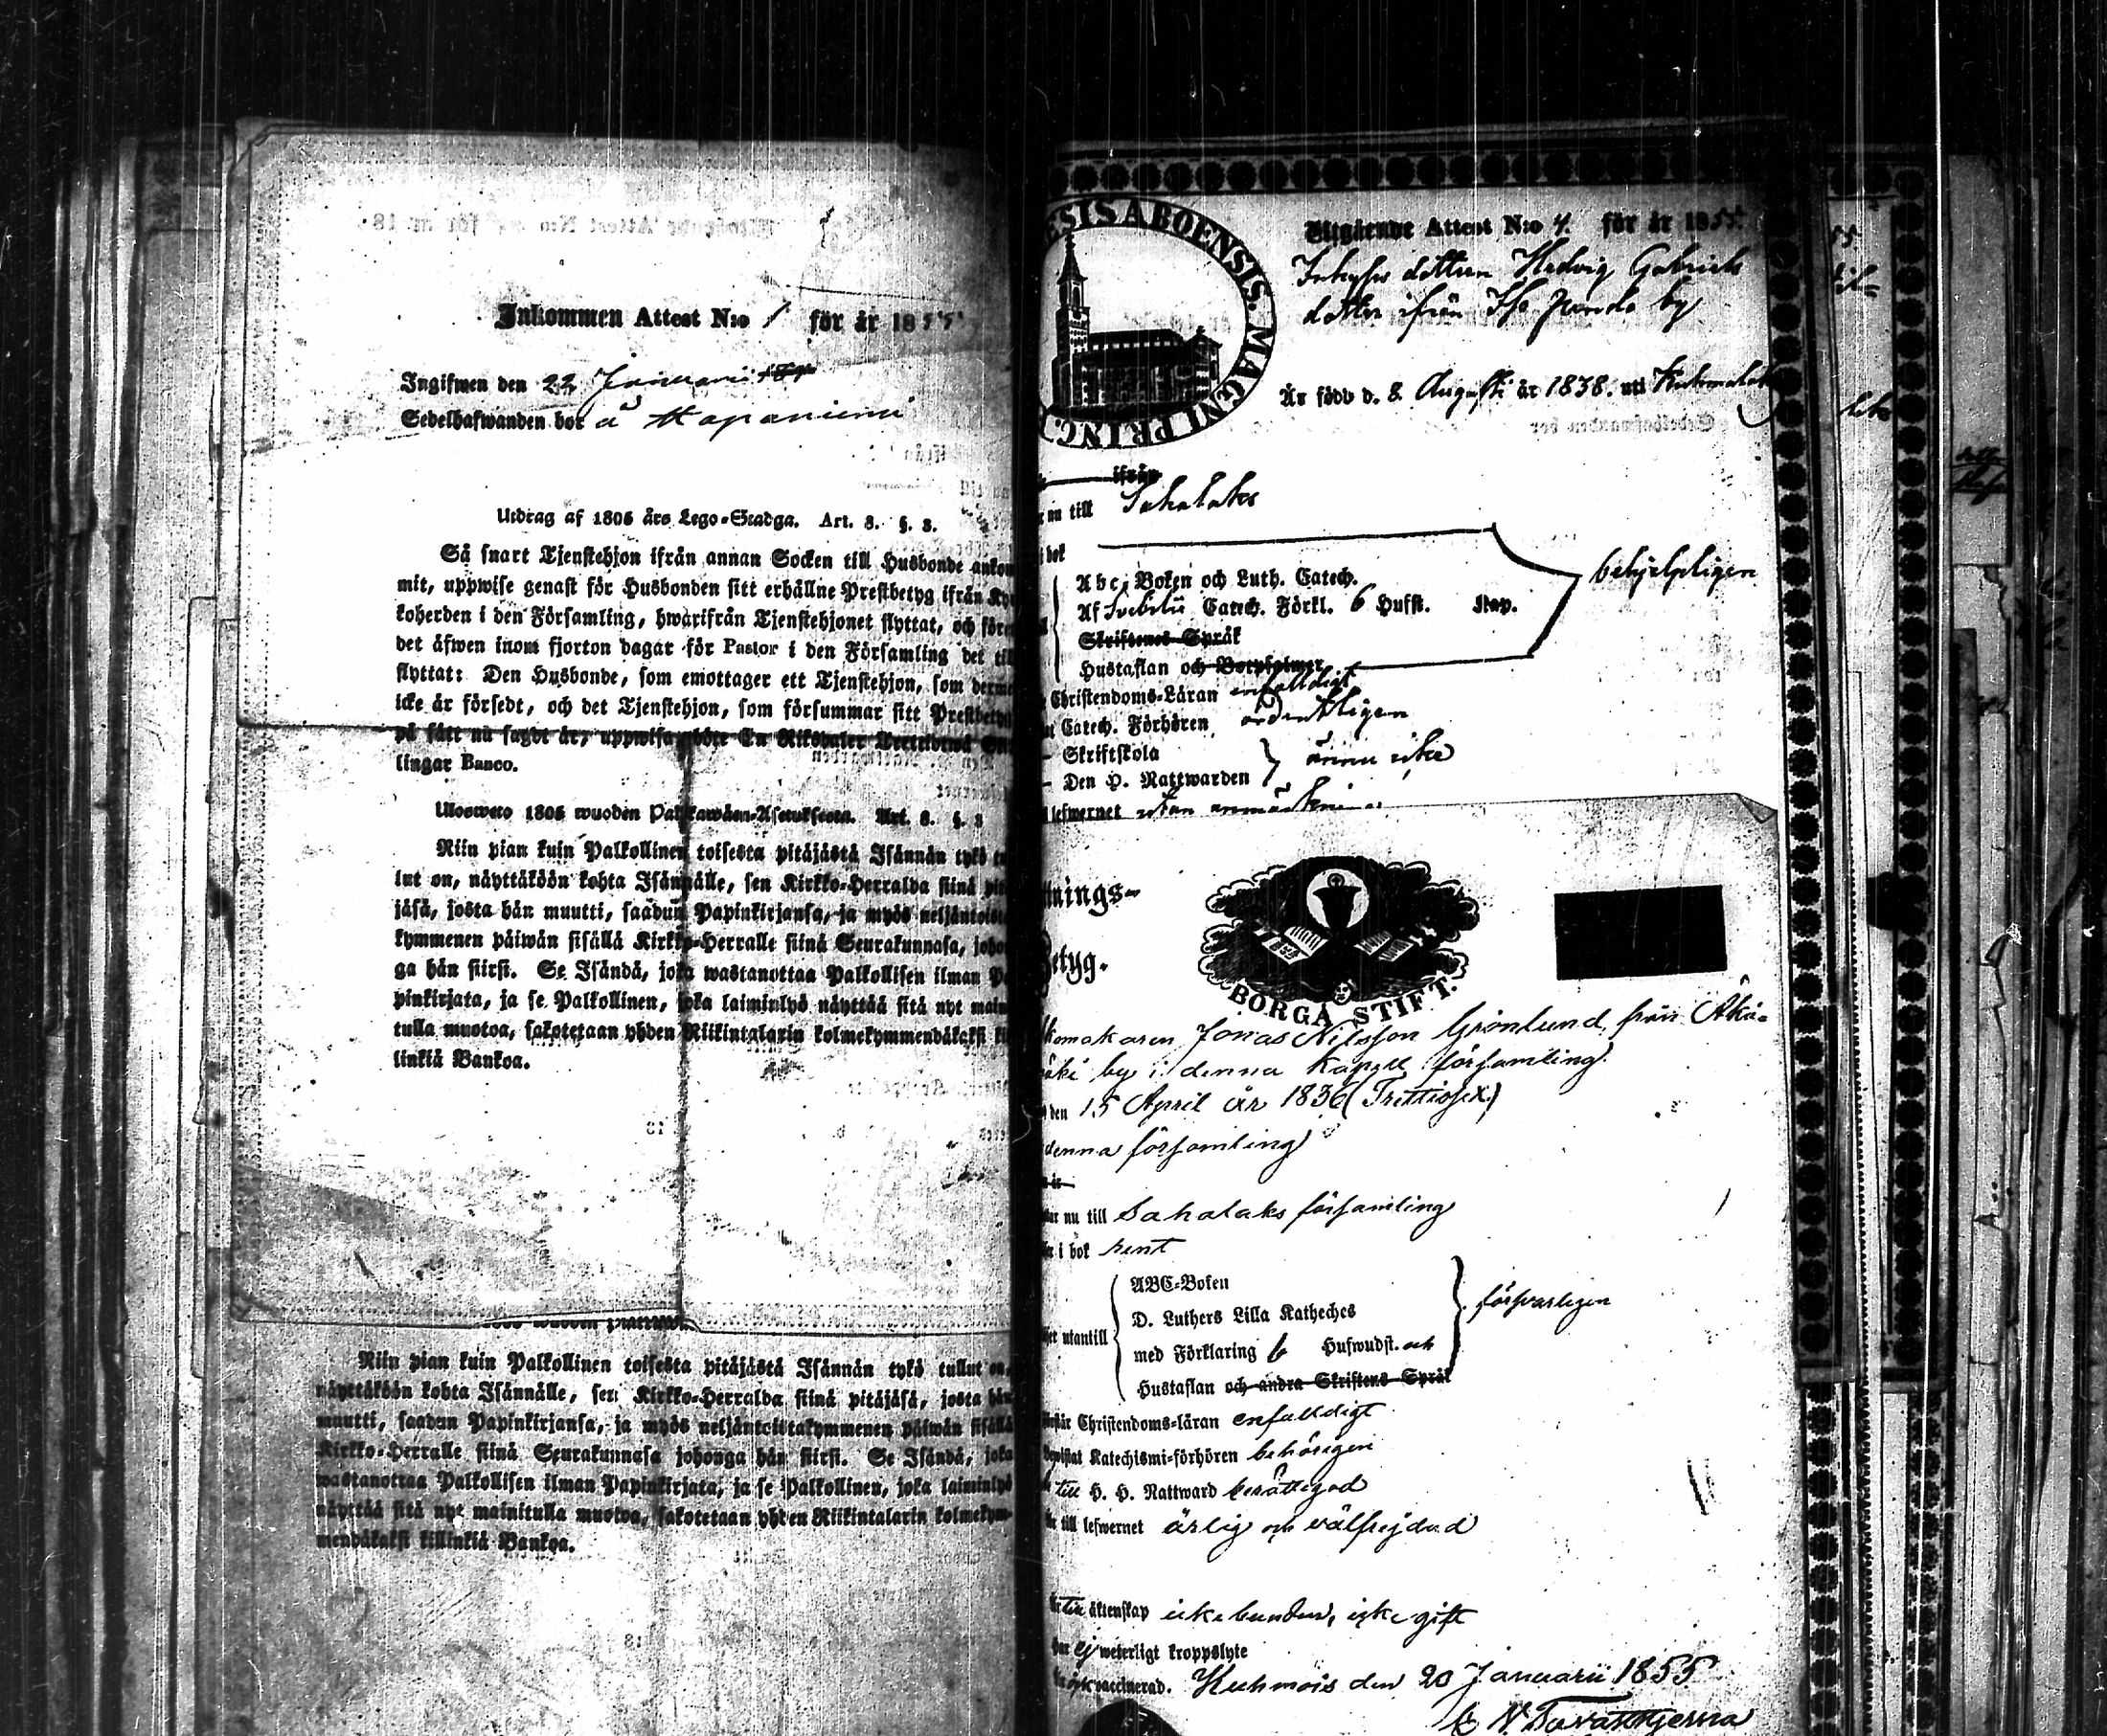 Inkommen Attest N:o 1 för år 1855
Ingifwen den 22 Januari
Sedelhafwanden bor å Hapaniemi
Utdrag af 1805 års Lego-Stadga. Art. 8. §. 3.
Så snart Tjenstehjon ifrån annan Socken till Husbonde ankom
mit, uppwise genast för Husbonden sitt erhållne Prestbetyg ifrån Kyr
koherden i den Församling, hwarifrån Tjenstehjonet flyttat, och före
det äfwen inom fjorton dagar för Pastor i den Församling det till
flyttat: Den Husbonde, som emottager ett Tjenstehjon, som derme
icke är försedt, och det Tjenstehjon, som försummar sitt Prestbetyg
på sätt nu sagdt är, uppwisa, böte En Riksdaler
lingar Banco.
Ulosweto 1805 wuoden Palkkawäen-Asetuksesta. Art. 8. §. 3
Niin pian kuin Palkollinen toisesta pitäjästä Isännän tykö tu
lut on, näyttäköön kohta Isännälle, sen Kirkko-Herralda siinä pitä
jäsä, josta hän muutti, saadun Papinkirjansa, ja myös neljäntoista
kymmenen päiwän sisällä Kirkko-Herralle siinä Seurakunnasa, joho
ga hän siirsi. Se Isändä, joka wastanottaa Palkollisen ilman Pa
pinkirjata, ja se Palkollinen, joka laiminlyö näyttää sitä nyt main
tulla muotoa, sakotetaan yhden Riikintalarin kolmekymmendäkaksi kil
linkiä Bankoa.
Niin pian kuin Palkollinen toisesta pitäjästä Isännän tykö tullut on,
näyttäköön kohta Isännälle, sen Kirkko-Herralda siinä pitäjäsä, josta hän
muutti, saadun Papinkirjansa, ja myös neljäntoistakymmenen päiwän sisällä
Kirkko-Herralle siinä Seurakunnasa johonga hän siirsi. Se Isändä, joka
wastanottaa Palkollisen ilman Papinkirjata, ja se Palkollinen, joka laiminlyö
näyttää sitä nyt mainitulla muotoa, sakotetaan yhden Riikintalarin kolmekym-
mendäkaksi killinkiä Bankoa.
ESIS ABOENSIS. MAGNI PRINC.
Utgående Attest N:o 4. för år 1855.
dottern Hedvig Gabriels
dotter ifrån by
År född d. 8. Augusti år 1838. uti Kuhmalaks
ifrån
nu till Sahalaks
i bok
Abc-Boken och Luth. Catech.
Af Svebelii Catech. Förkl. 6 Hufst. Kap.
behjelpligen
Skriftenes Språk
Hustaflan och Botpsalmer
Christendoms-Läran enfaldigt
Catech. Förhören ordentligen
Skriftskola
Den H. Nattwarden ännu icke
lefwernet utan anmärkning
nings-
etyg.
BORGÅ STIFT.
makaren Jonas Nilsson Grönlund från Åkä-
äki by i denna Kapell församling
den 15 April år 1836 (Trettiosex)
denna församling
nu till Sahalaks församling
i bok rent
utantill
ABC-Boken
D. Luthers Lilla Katheches
med Förklaring 6 Hufwudst. och
Hustaflan och andra Skriftens Språk
försvarligen
Christendoms-läran enfalldigt
Katechismi-förhören behörigen
till H. H. Nattward berättigad
till lefwernet ärlig och välfrejdad
till äktenskap icke bunden, icke gift
ej weterligt kroppslyte
vaccinerad. Kuhmois den 20 Januarii 1855
N. Tavaststjerna